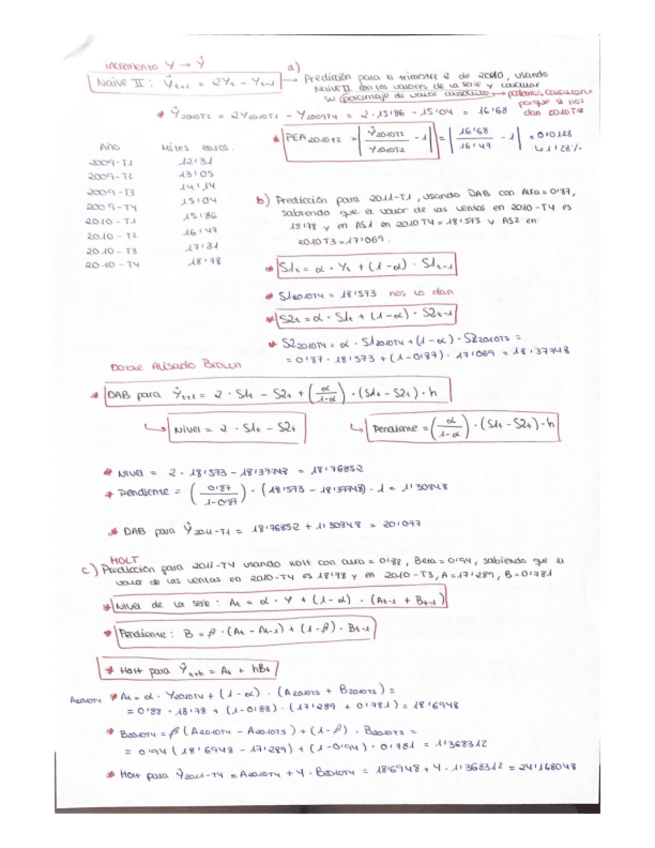 incremento Y → Ŷ
Naive II : Ŷt+1 = 2Yt - Yt-1
a)
→ Predicción para el trimestre 2 de 2010, usando
Naive II con los valores de la serie y calcular
su porcentaje de valor absoluto → podemos calcularlo
porque si nos
dan 2010T2
* Ŷ2010T2 = 2Y2010T1 - Y2009T4 = 2 · 15'86 - 15'04 = 16'68
* PEA2010T2 = | Ŷ2010T2 / Y2010T2 - 1 | = | 16'68 / 16'47 - 1 | = 0'0128
↳ 1'28%
Año Miles euros.
2009-T1 12'31
2009-T2 13'05
2009-T3 14'14
2009-T4 15'04
2010-T1 15'86
2010-T2 16'47
2010-T3 17'31
2010-T4 18'78
b) Predicción para 2011-T1, usando DAB con Alfa = 0'87,
sabiendo que el valor de las ventas en 2010-T4 es
18'78 y en AS1 en 2010T4 = 18'573 y AS2 en
2010T3 = 17'069.
* S1t = α · Yt + (1-α) · S1t-1
* S12010T4 = 18'573 nos lo dan
* S2t = α · S1t + (1-α) · S2t-1
* S22010T4 = α · S12010T4 + (1-α) · S22010T3 =
= 0'87 · 18'573 + (1-0'87) · 17'069 = 18'37748
Doble Alisado Brown
* DAB para Ŷt+1 = 2 · S1t - S2t + (α / 1-α) · (S1t - S2t) · h
↳ Nivel = 2 · S1t - S2t
↳ Pendiente = (α / 1-α) · (S1t - S2t) · h
* Nivel = 2 · 18'573 - 18'37748 = 18'76852
* Pendiente = (0'87 / 1-0'87) · (18'573 - 18'37748) · 1 = 1'30848
* DAB para Ŷ2011-T1 = 18'76852 + 1'30848 = 20'077
HOLT
c) Predicción para 2011-T4 usando Holt con alfa = 0'88, Beta = 0'94, sabiendo que el
valor de las ventas en 2010-T4 es 18'78 y en 2010-T3, A = 17'289, B = 0'781
* Nivel de la serie : At = α · Y + (1-α) · (At-1 + Bt-1)
* Pendiente : B = β · (At - At-1) + (1-β) · Bt-1
* Holt para Ŷt+h = At + hBt
A2010T4 * At = α · Y2010T4 + (1-α) · (A2010T3 + B2010T3) =
= 0'88 · 18'78 + (1-0'88) · (17'289 + 0'781) = 18'6948
* B2010T4 = β (A2010T4 - A2010T3) + (1-β) · B2010T3 =
= 0'94 (18'6948 - 17'289) + (1-0'94) · 0'781 = 1'368312
* Holt para Ŷ2011-T4 = A2010T4 + 4 · B2010T4 = 18'6948 + 4 · 1'368312 = 24'168048